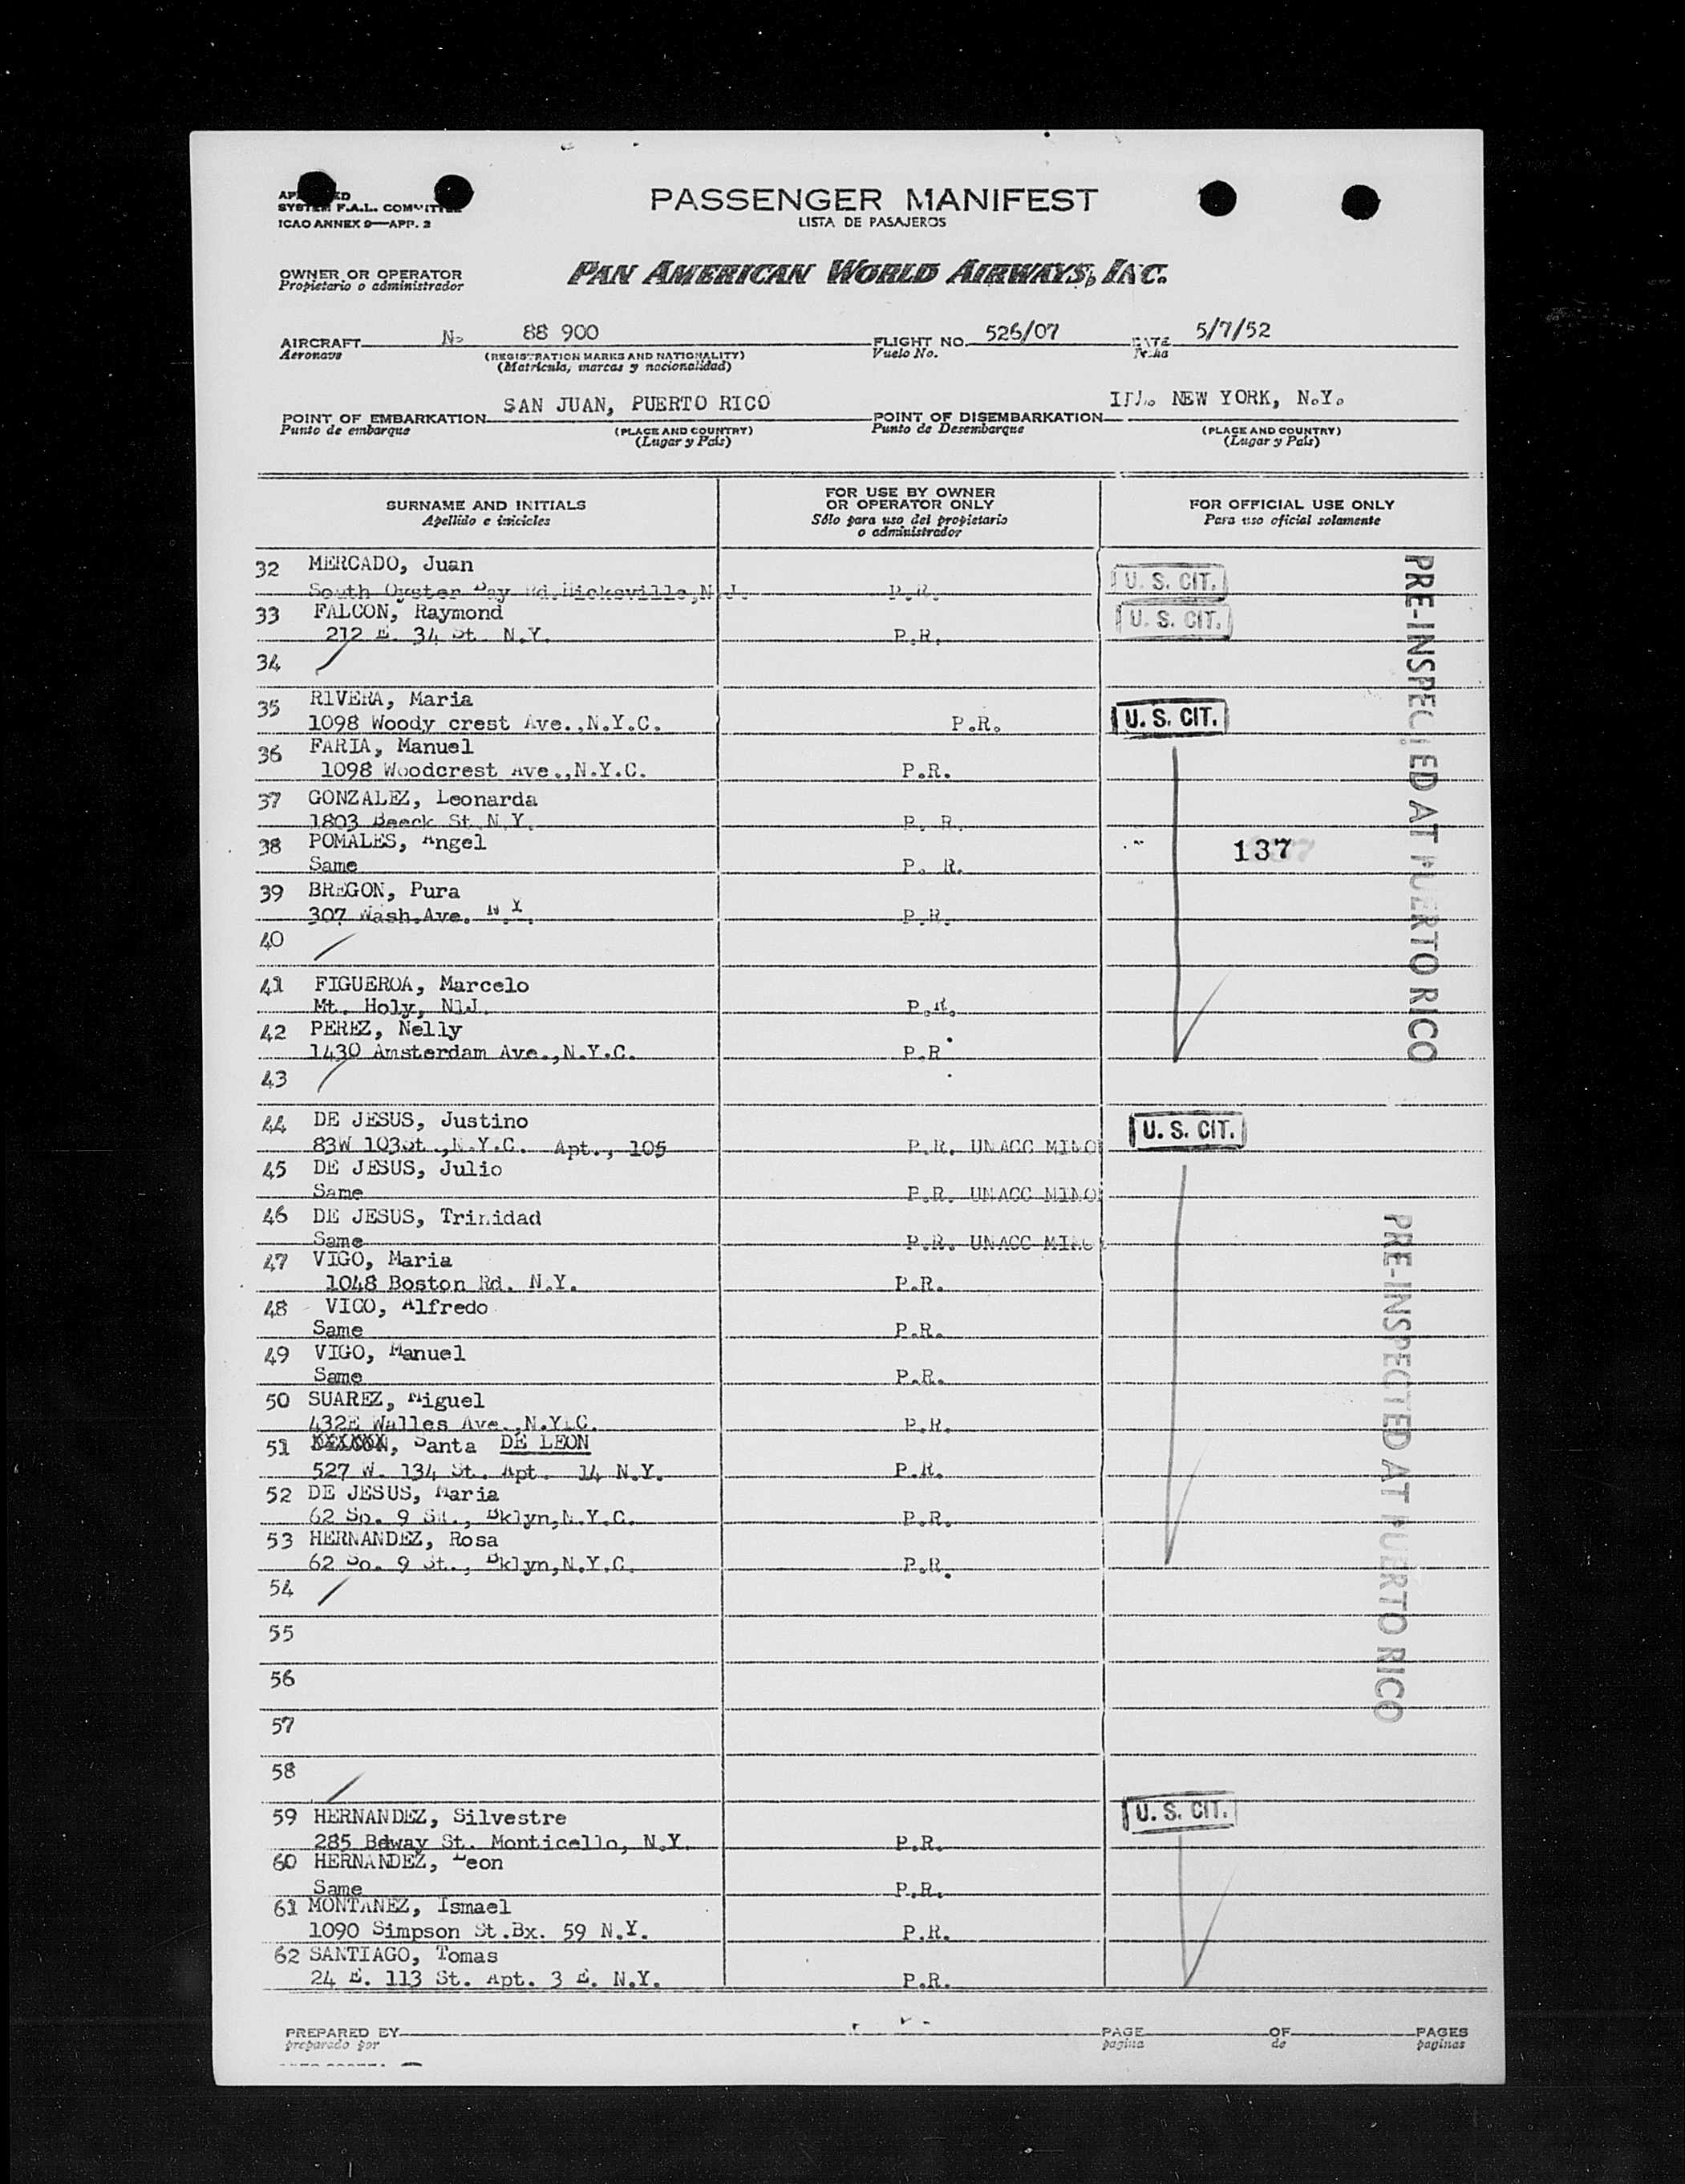 APPROVED
SYSTEM F.A.L. COMMITTEE
ICAO ANNEX 9—APP. 2
PASSENGER MANIFEST
LISTA DE PASAJEROS
OWNER OR OPERATOR
Propietario o administrador
PAN AMERICAN WORLD AIRWAYS, INC.
AIRCRAFT N. 88 900 FLIGHT NO. 526/07 DATE 5/7/52
Aeronave (REGISTRATION MARKS AND NATIONALITY) Vuelo No. Fecha
(Matrícula, marcas y nacionalidad)
POINT OF EMBARKATION SAN JUAN, PUERTO RICO POINT OF DISEMBARKATION NEW YORK, N.Y.
Punto de embarque (PLACE AND COUNTRY) Punto de Desembarque (PLACE AND COUNTRY)
(Lugar y País) (Lugar y País)
SURNAME AND INITIALS FOR USE BY OWNER OR OPERATOR ONLY FOR OFFICIAL USE ONLY
Apellido e iniciales Sólo para uso del propietario o administrador Para uso oficial solamente
32 MERCADO, Juan U. S. CIT.
South Oyster Bay Rd.Hicksville,N.J. P.R.
33 FALCON, Raymond U. S. CIT.
212 E. 34 St. N.Y. P.R.
34 /
35 RIVERA, Maria
1098 Woody crest Ave.,N.Y.C. P.R. U. S. CIT.
36 FARIA, Manuel
1098 Woodcrest Ave.,N.Y.C. P.R.
37 GONZALEZ, Leonarda
1803 Beeck St N.Y. P. R.
38 POMALES, Angel 137
Same P. R.
39 BREGON, Pura
307 Wash.Ave. N.Y. P.R.
40 /
41 FIGUEROA, Marcelo
Mt. Holy, N1J. P.R.
42 PEREZ, Nelly
1430 Amsterdam Ave.,N.Y.C. P.R.
43 /
44 DE JESUS, Justino U. S. CIT.
83W 103St.,N.Y.C. Apt., 105 P.R. UNACC MINOR
45 DE JESUS, Julio
Same P.R. UNACC MINOR
46 DE JESUS, Trinidad
Same P.R. UNACC MINOR
47 VIGO, Maria
1048 Boston Rd. N.Y. P.R.
48 VIGO, Alfredo
Same P.R.
49 VIGO, Manuel
Same P.R.
50 SUAREZ, Miguel
432E Walles Ave.,N.Y.C. P.R.
51 Santa DE LEON
527 W. 134 St. Apt. 14 N.Y. P.R.
52 DE JESUS, Maria
62 So. 9 St., Bklyn,N.Y.C. P.R.
53 HERNANDEZ, Rosa
62 So. 9 St., Bklyn,N.Y.C. P.R.
54 /
55
56
57
58 /
59 HERNANDEZ, Silvestre U. S. CIT.
285 Bdway St. Monticello, N.Y. P.R.
60 HERNANDEZ, Leon
Same P.R.
61 MONTANEZ, Ismael
1090 Simpson St.Bx. 59 N.Y. P.R.
62 SANTIAGO, Tomas
24 E. 113 St. Apt. 3 E. N.Y. P.R.
PRE-INSPECTED AT PUERTO RICO
PRE-INSPECTED AT PUERTO RICO
PREPARED BY PAGE OF PAGES
preparado por pagina de paginas